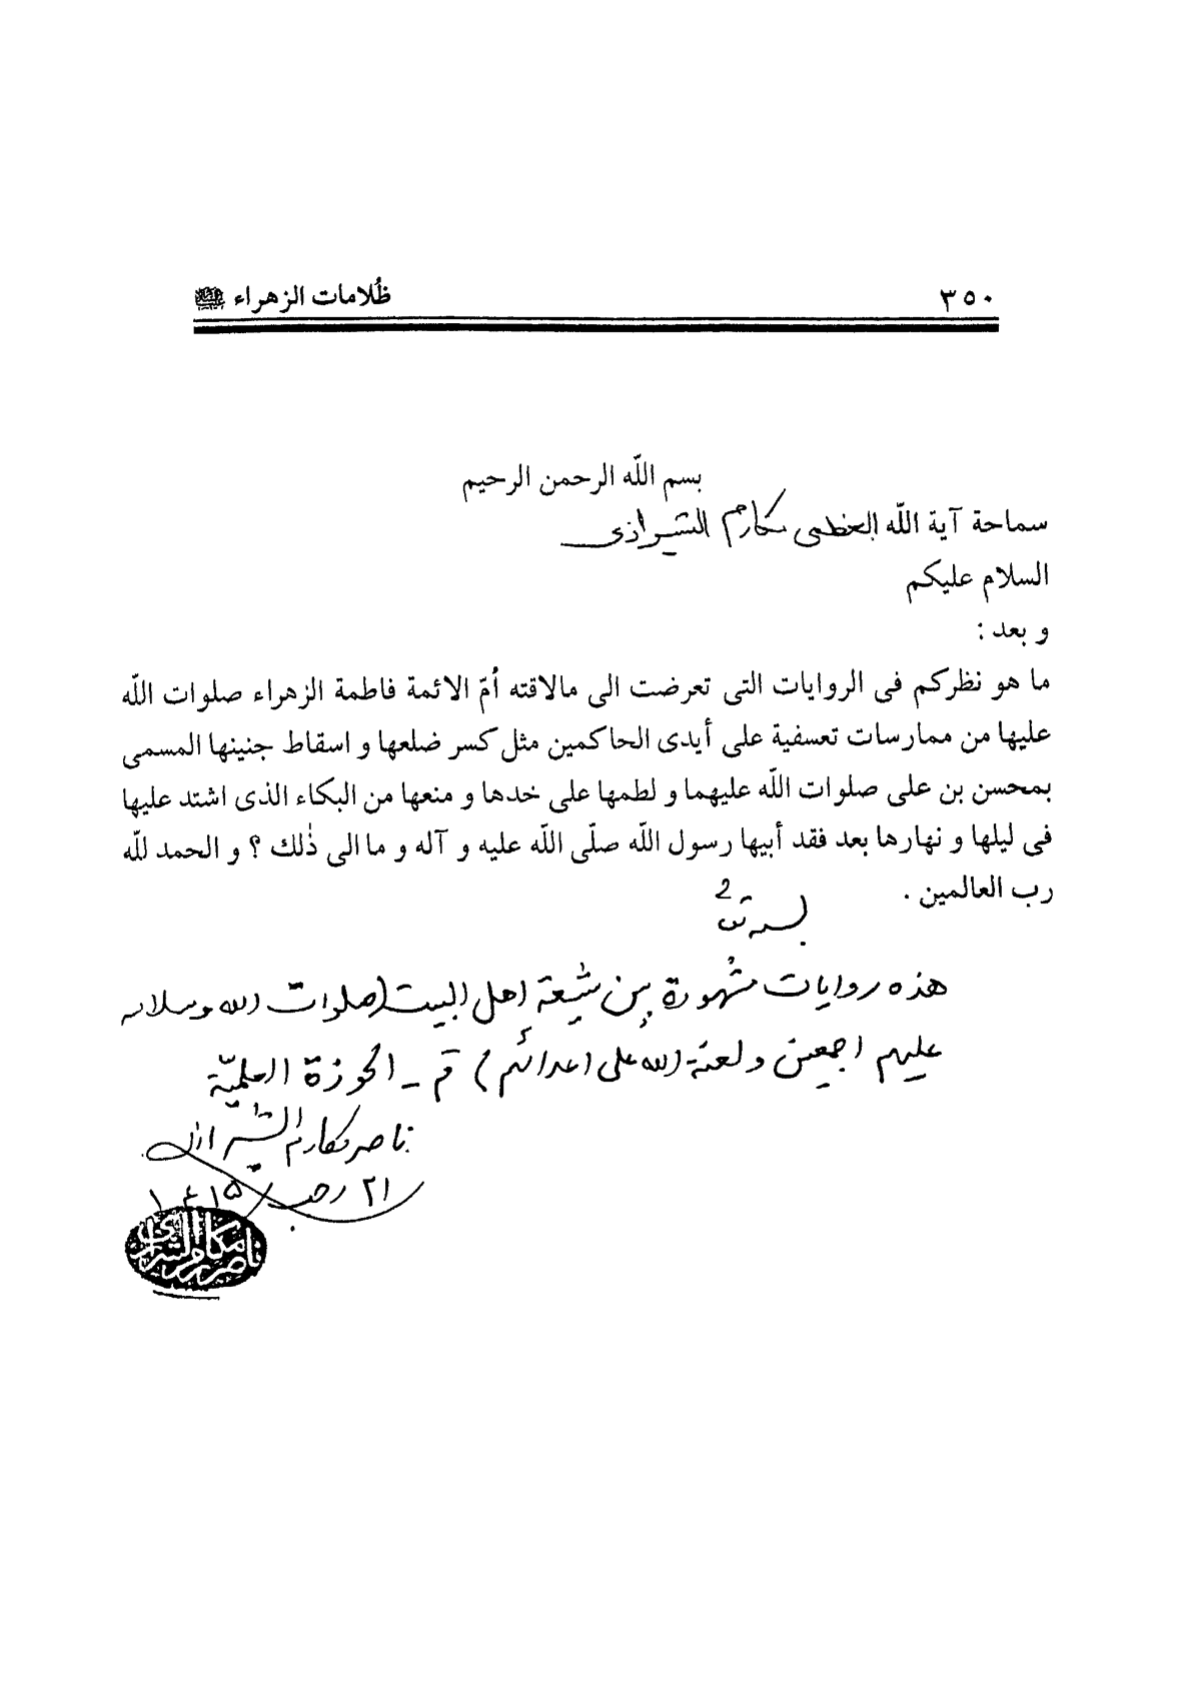 ٣٥٠
ظُلامات الزهراء
بسم اللّه الرحمن الرحيم
سماحة آية اللّه العظمى مكارم الشيرازى
السلام عليكم
و بعد :
ما هو نظركم فى الروايات التى تعرضت الى مالاقته أمّ الائمة فاطمة الزهراء صلوات اللّه
عليها من ممارسات تعسفية على أيدى الحاكمين مثل كسر ضلعها و اسقاط جنينها المسمى
بمحسن بن على صلوات اللّه عليهما و لطمها على خدها و منعها من البكاء الذى اشتد عليها
فى ليلها و نهارها بعد فقد أبيها رسول اللّه صلّى اللّه عليه و آله و ما الى ذٰلك ؟ و الحمد للّه
رب العالمين .
هذه روايات مشهورة بين شيعة اهل البيت (صلوات الله وسلامه
عليهم اجمعين ولعنة الله على اعدائهم) قم - الحوزة العلميّة
ناصر مكارم الشيرازى
٢١ رجب ١٤١٥
ناصر مكارم الشيرازى